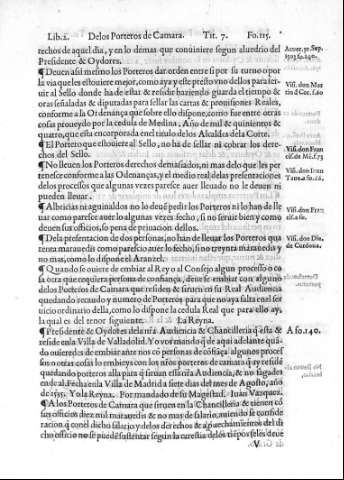 Lib.2. De los Porteros de Camara. Tit. 7. Fo.115.
rechos de aquel dia, y en lo demas que conuiniere segun aluedrio del
Presidente & Oydores.
¶ Deuen asi mesmo los Porteros dar orden entre si por su turno o por
la via que les estouiere mejor, como aya y este presto vno dellos para ser-
uir al Sello donde ha de estar & residir haziendo guarda el tiempo &
oras señaladas & diputadas para sellar las cartas & prouisiones Reales,
conforme a la Ordenança que sobre ello dispone, como fue entre otras
cosas proueydo por la cedula de Medina, Año de mil & quinientos &
quatro, que esta encorporada en el titulo de los Alcaldes de la Corte.
¶ El Portero que estouiere al Sello, no ha de sellar ni cobrar los dere-
chos del Sello.
¶ No lleuen los Porteros derechos demasiados, ni mas delo que les per
tenesce conforme a las Ordenanças, y el medio real de las presentaciones
de los processos que algunas vezes paresce auer lleuado no le deuen ni
pueden lleuar.
¶ Albricias ni aguinaldos no lo deuẽ pedir los Porteros ni lo han de lle
uar como paresce auer lo algunas vezes fecho, si no seruir bien y como
deuen sus officios, so pena de priuacion dellos.
¶ De la presentacion de des personas, no han de lleuar los Porteros qua
renta marauedis como parescio auer lo fecho, sino treynta marauedis y
no mas, como lo dispone el Aranzel.
¶ Quando se ouiere de embiar al Rey o al Consejo algun processo o co
sa otra que requiera persona de confiança, deue se embiar con alguno
de los Porteros de Camara que residen & siruen en su Real Audiencia
quedando recaudo y numero de Porteros para que no aya falta en el ser
uicio ordinario della, como lo dispone la cedula Real que para ello ay,
la qual es del tenor siguiente. La Reyna.
¶ Presidente & Oydores dela nr̃a Audiencia & Chancilleria q̃ esta &
reside en la Villa de Valladolid. Yo vos mando q̃ de aqui adelante quã-
do ouieredes de embiar ante nos cõ personas de cõfiãça algunos proces
sos o otras cosas lo embieys con los nr̃os porteros de camara q̃ ay reside
quedando porteros alla para q̃ siruan essa nr̃a Audiencia, & no fagades
en de al. Fecha en la Villa de Madrid a siete dias del mes de Agosto, año
Yo la Reyna. Por mandado de su Magestad. Iuan Vazquez.
¶ A los Porteros de Camara que siruen en la Chancilleria & tienen cõ
sus officios diez mil marauedis & no mas de salario, auiendo se conside
racion q̃ con el dicho salario y delos derechos & aprouechamiẽtos del di
cho officio no se puedẽ sustentar segun la carestia delos tiẽpos se les deue
V
Auer. 30. Sep.
Visi. don Mar
tin d Cor. f. 60
Visi. don Fran
cis. de Mẽ. f. 73
Visi. don Iuan
Visi. don Fran
Visi. don Die.
de Cordoua.
A fo. 140.